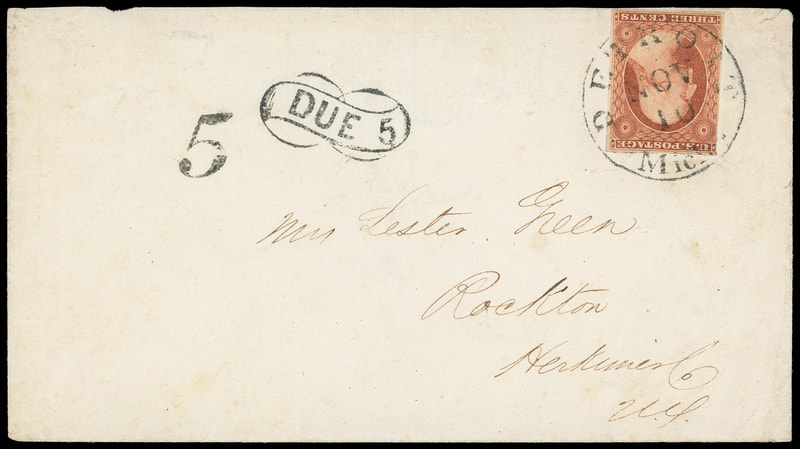 THREE CENTS
DETROIT
NOV
10
Mich.
U.S. POSTAGE
5
DUE 5
Mrs Lester Green
Rockton
Herkimer Co
N.Y.